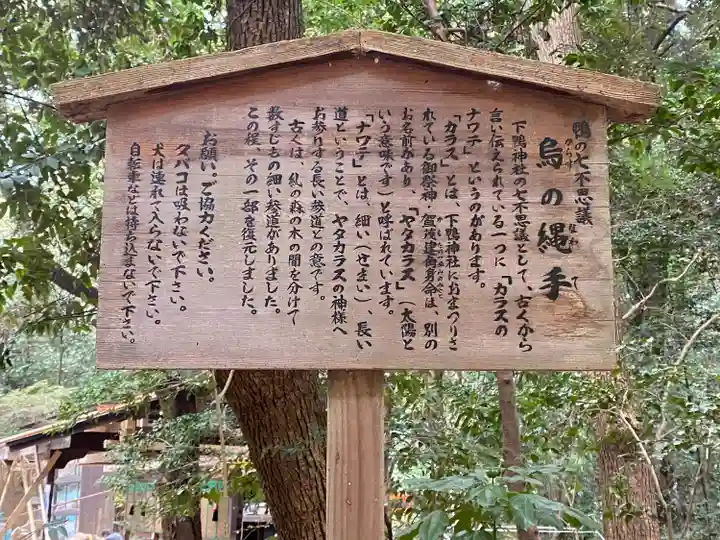 鴨の七不思議
烏の縄手
からす なわ て
下鴨神社の七不思議として、古くから
言い伝えられている一つに「カラスの
ナワテ」というのがあります。
「カラス」とは、下鴨神社におまつりさ
れている御祭神 賀茂建角身命は、別の
お名前があり 「ヤタカラス」(太陽と
いう意味です)と呼ばれています。
「ナワテ」とは、細い(せまい)、長い
道ということで、ヤタカラスの神様へ
お参りする長い参道との意です。
古くは、糺の森の木の間を分けて
数すじもの細い参道がありました。
この程、その一部を復元しました。
お願い。ご協力ください。
タバコは吸わないで下さい。
犬は連れて入らないで下さい。
自転車などは持ち込まないで下さい。